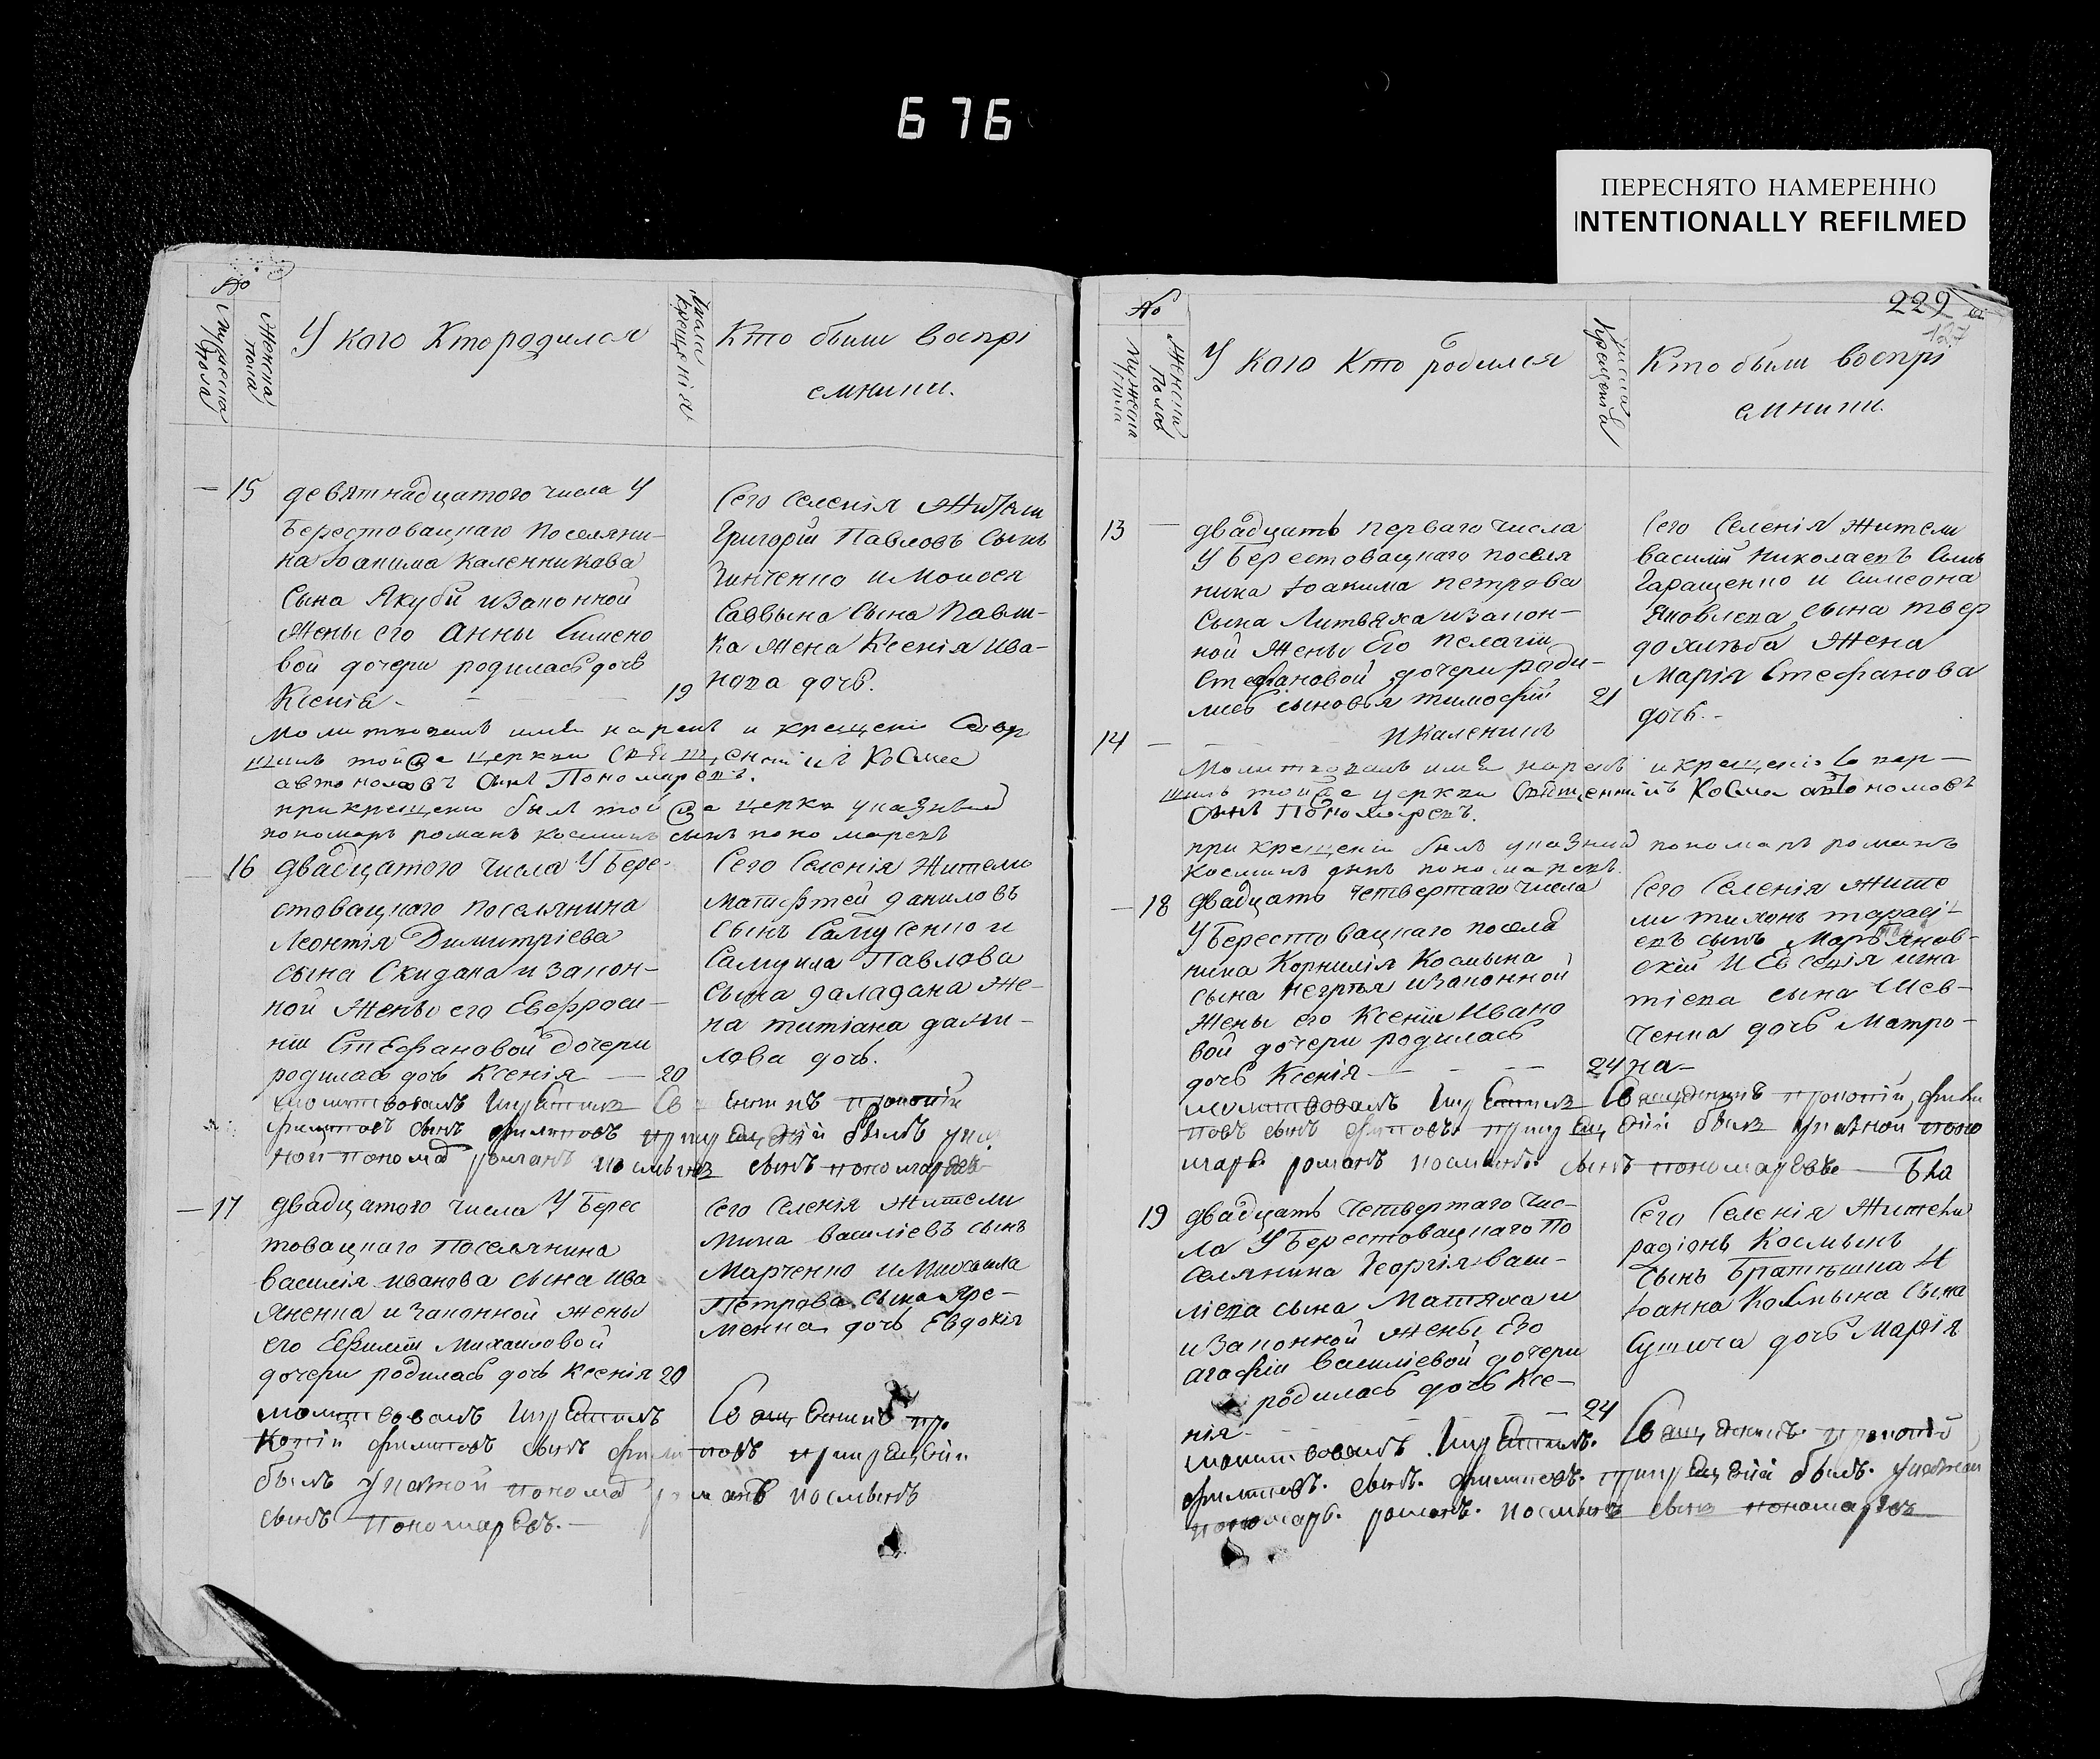 676
ПЕРЕСНЯТО НАМЕРЕННО
INTENTIONALLY REFILMED
№
Мужеска пола
Женска пола
У кого Кто родился
Числа Крещенія
Кто были воспрі
емники.
15
девятнадцатого числа У
Берестовацкаго Поселяни-
на Іоакима Каленикова
Сына Якубы и Законной
Жены его Анны Симено
вой дочери родилась дочь
Ксенія
19
Сего Селенія Жители
Григорій Павловъ Сынъ
Зинченко и Моисея
Саввына Сына Павли-
ка Жена Ксенія Ива-
нова дочь.
Молитвовалъ имя нарекъ и крещеніе Совер
шилъ тойже церкви Священникъ Косма
автономовъ Сынъ Пономаревъ.
при крещеніи былъ той же церкви указный
пономарь романъ косминъ сынъ пономаревъ
16
двадцатого Числа У Бере-
стовацкаго поселянина
Леонтія Димитріева
сына Скидана и закон-
ной Жены его Евфроси-
ніи Стефановой дочери
родилась дочь Ксенія
20
Сего Селенія Жители
Матфтей даниловъ
Сынъ Самусенко и
Самуила Павлова
Сына даладана Же-
на татіана дани-
лова дочь.
молитвовалъ и крестилъ Священникъ прокопій
филиповъ сынъ филиповъ при крещеніи былъ указ
ной пономар романъ космынъ сынъ пономаревъ
17
двадцатого числа У Берес
товацкаго Поселянина
василія иванова сына Ива
хненка и законной жены
его Евфиміи Михаиловой
дочери родилась дочь Ксенія
20
Сего Селенія Жители
Мина василіевъ сынъ
Марченко и Михаила
Петрова сына Яре-
менка дочь Евдокія
молитвовалъ и крестилъ Священникъ про
копій филиповъ сынъ филиповъ при крещеніи
былъ указной пономар романъ космынъ
сынъ пономаревъ.
229
127
№
Мужеска Пола
Женска Пола
У кого Кто родился
числа Крещенія
Кто были воспрі
емники.
13
двадцать перваго Числа
У Берестовацкаго поселя
нина Іоакима петрова
Сына Литвяха и закон-
ной Жены Его Пелагіи
Стефановой дочери роди-
лись сыновья тимофій
21
14
и Каленикъ
Сего Селенія Жители
василій Николаевъ Сынъ
Таращенко и Симеона
Яковлева сына твер
дохлѣба Жена
Марія Стефанова
дочь.
Молитвовалъ имя нарекъ и крещеніе Совер-
шилъ тойже церкви Священникъ Косма автономовъ
Сынъ Пономаревъ.
при крещеніи былъ указный пономарь романъ
косминъ сынъ пономаревъ.
18
двадцать четвертаго числа
У Берестовацкаго поселя
нина Корнилія Космына
сына Негрѣя и Законной
Жены его Ксеніи Ивано
вой дочери родилась
дочь Ксенія
24
Сего Селенія Жите
ли тихонъ тарасі-
евъ сынъ Марьянов-
скій и Евсевія игна
тіева сына Шев-
ченка дочь Матро-
на
молитвовалъ и крестилъ Священникъ прокопій фили
повъ сынъ филиповъ при крещеніи былъ указной поно
марь романъ космынъ сынъ пономаревъ
19
двадцать Четвертаго Чис-
ла У Берестовацкаго По
Селянина Георгія васи-
ліева сына Матяха и
и Законной жены Его
агафіи василіевой дочери
родилась дочь Ксе-
нія
24
Сего Селенія Жители
радіонъ Космынъ
сынъ Братишка И
Іоанна Космына Сына
Сушича дочь Марія
молитвовалъ и крестилъ Священникъ прокопій
филиповъ сынъ филиповъ при крещеніи былъ указной
пономарь романъ космынъ сынъ пономаревъ